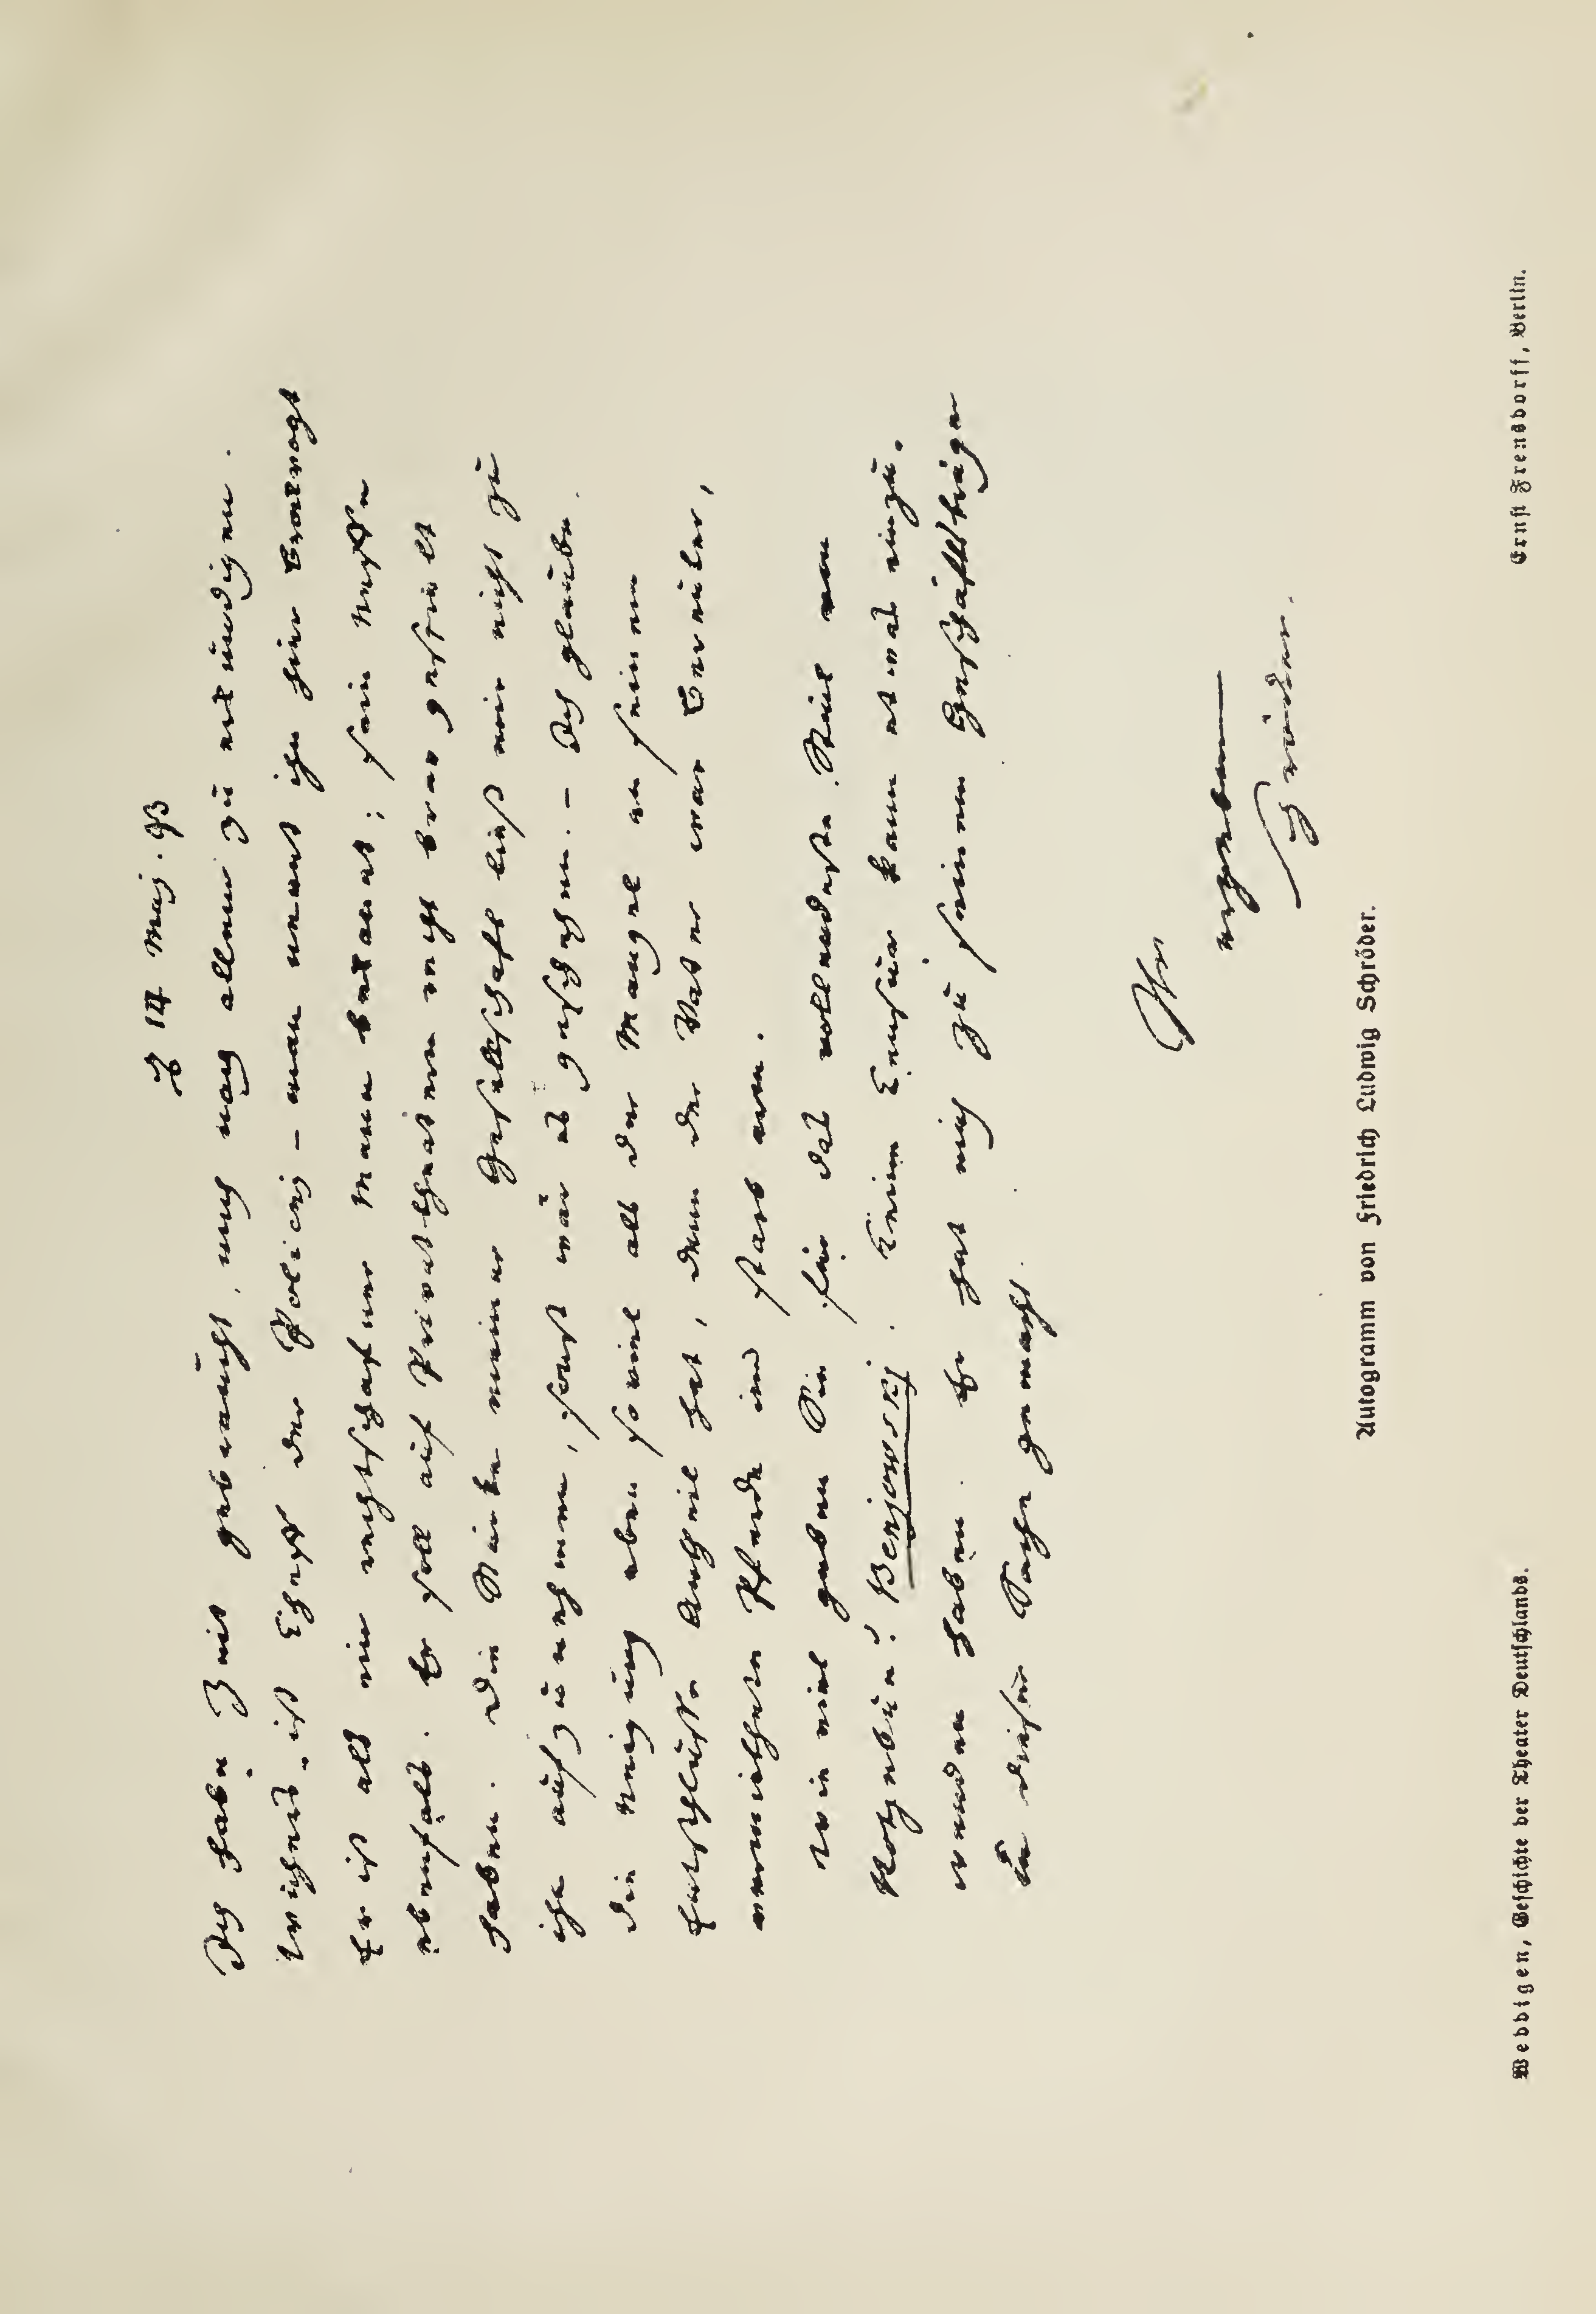 H 14 Maj. 93
Ich habe Zeit gebraucht, mich nach allem zu erkundigen.
ist Chef der Policej – man nennt ihn hier
Er ist als ein rechtschafner Mann bekant; sein Neffe
ebenfals. Er soll auf Privattheatern recht brav gespielt
haben. Die Stärke meiner Gesellschaft lies mir nicht zu
ihn aufzunehmen, sonst wär es geschehen. – Ich glaube
die Neigung eben soviel als der Mangel an seinem
Entschlusse Antheil hat, denn der Vater war
Pferde und starb arm.
Wie viel geben Sie für das vollendeste Stük von
Kotzebue? Benjowskj. Keine Censur kann etwas einzu-
wenden haben. Er hat mich zu seinem Geschäftträger
in dieser Sache gemacht.
Ihr
ergebener
Schröder.
Autogramm von Friedrich Ludwig Schröder.
Weddigen, Geschichte der Theater Deutschlands.
Ernst Frensdorff, Berlin.